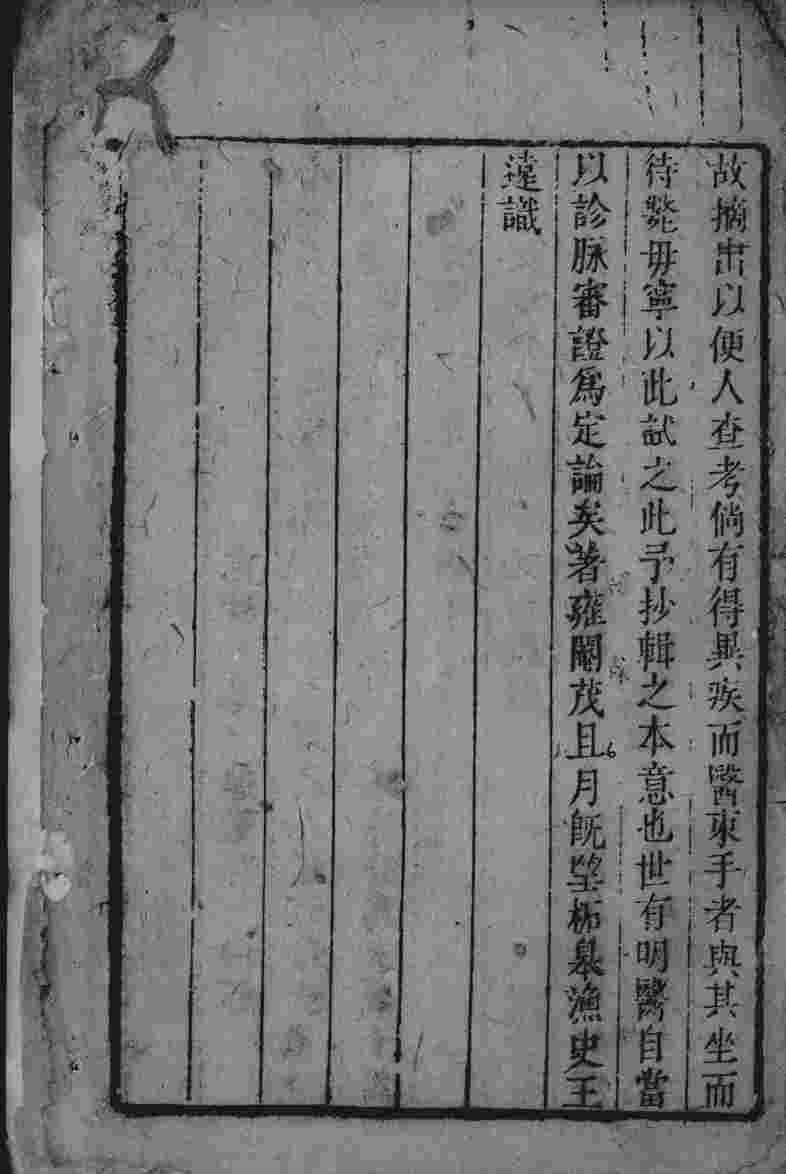 故摘出以便人查考倘有得異疾而醫束手者與其坐而
待斃毋寧以此試之此予抄輯之本意也世有明醫自當
以診脉審證爲定論矣著雍閹茂且月既望柘皋漁史王
遠識